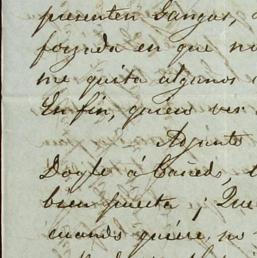 presenten gangas,
fogada en que no
me quita algunos
En fin, quiero ver
Adjunto
Doyle á Cañedo,
bien puesta; Que
cuando quiere, no